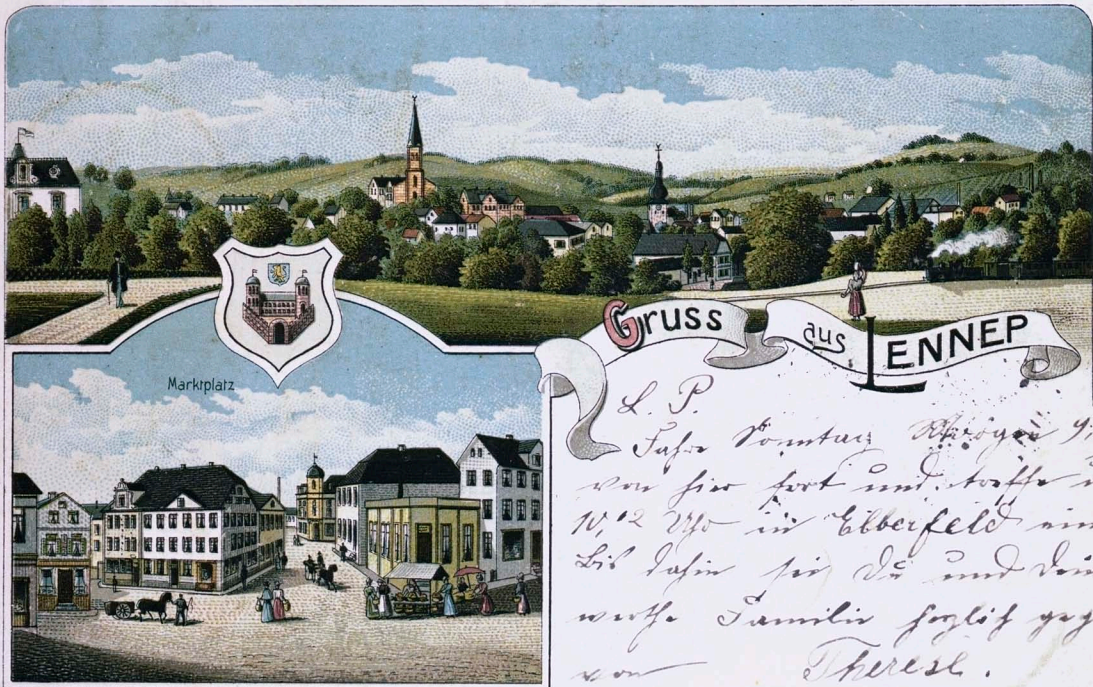 Gruss aus LENNEP
Marktplatz
L. P.
Fahre Sonntag Morgen 9,
von hier fort und treffe
10,12 Uhr in Elberfeld ein
Bis dahin sei Du und Dein
werthe Familie herzlich geg
von Therese.